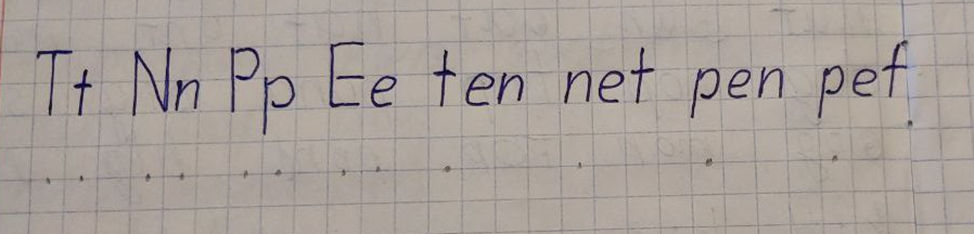 Tt Nn Pp Ee ten net pen pef